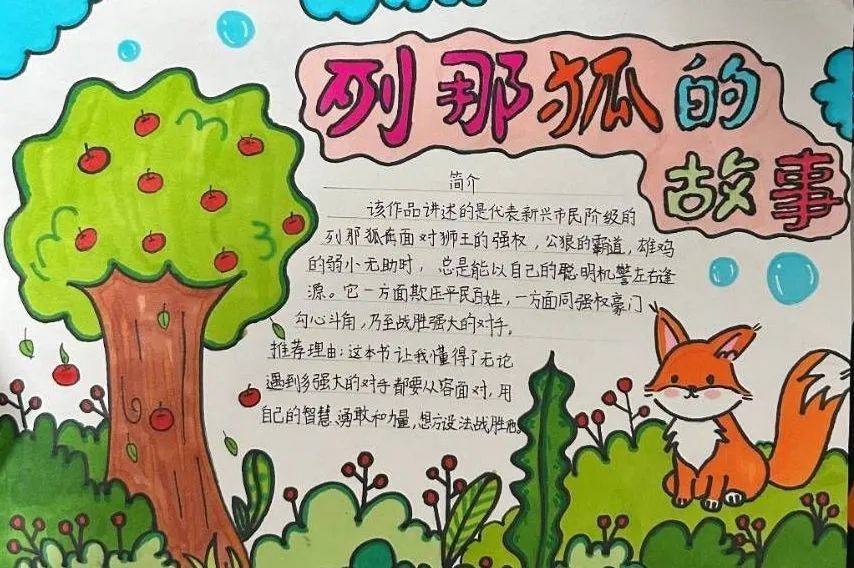 列那狐的
故事
简介
该作品讲述的是代表新兴市民阶级的
列那狐在面对狮王的强权，公狼的霸道，雄鸡
的弱小无助时，总是能以自己的聪明机警左右逢
源。它一方面欺压平民百姓，一方面同强权豪门
勾心斗角，乃至战胜强大的对手。
推荐理由：这本书让我懂得了无论
遇到多强大的对手都要从容面对，用
自己的智慧、勇敢和力量，想方设法战胜他。